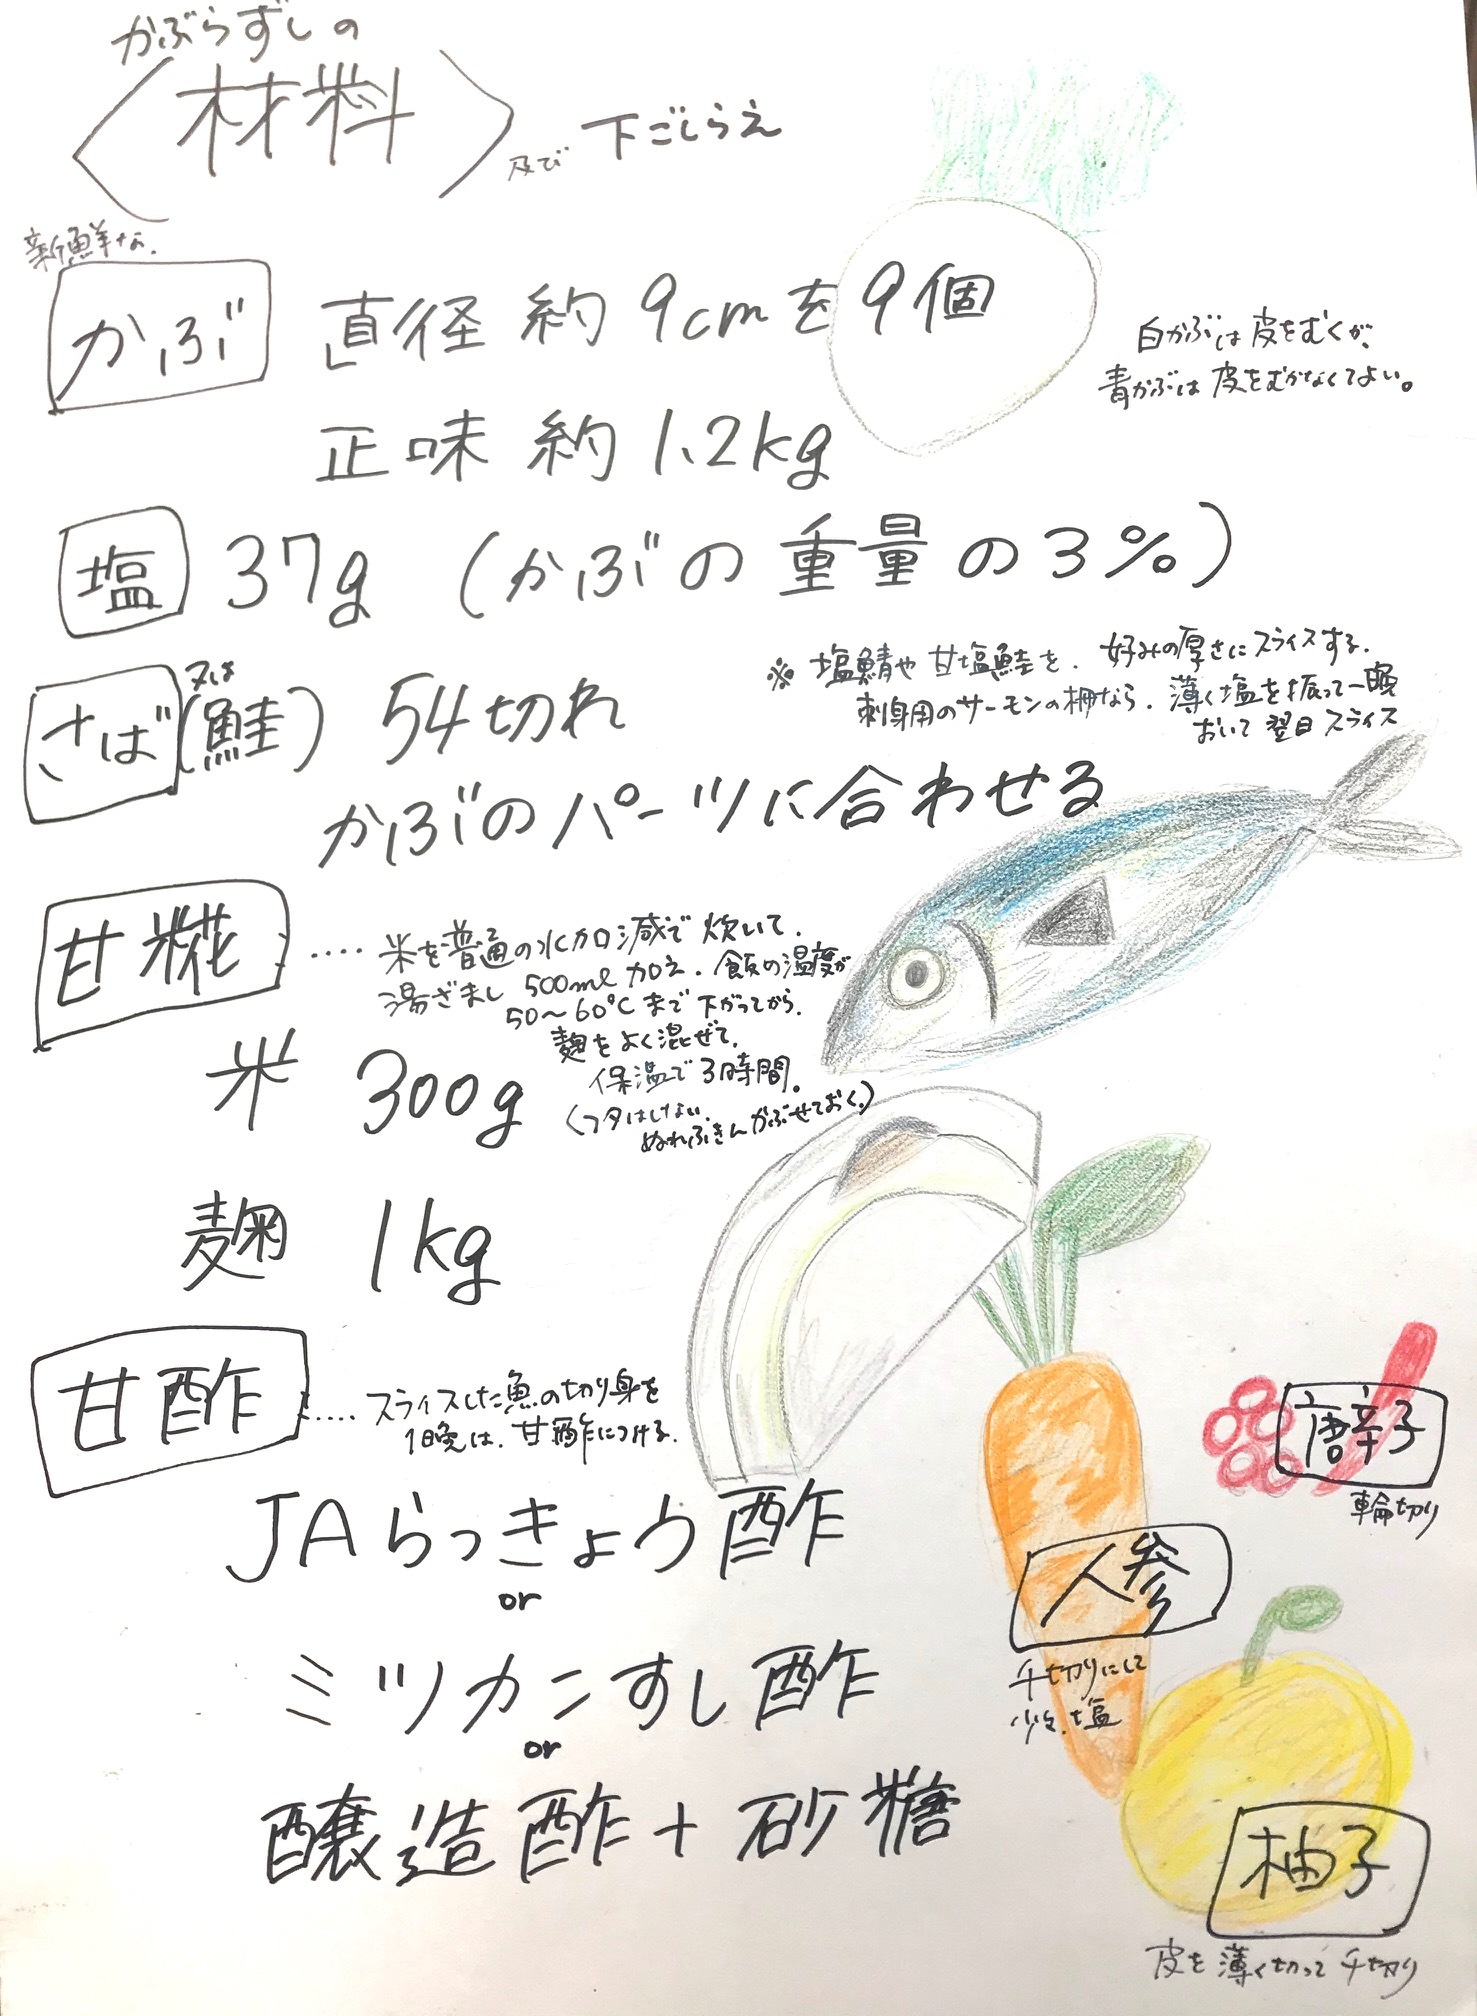 かぶらずしの
〈材料〉及び 下ごしらえ
新鮮な
かぶ 直径 約 9cmを9個
白かぶは皮をむくが、
青かぶは皮をむかなくてよい。
正味 約 1.2kg
塩 37g (かぶの重量の3%)
さば(又は鮭) 54切れ
※ 塩鯖や甘塩鮭を、好みの厚さにスライスする。
刺身用のサーモンの柵なら、薄く塩を振って一晩
おいて翌日スライス
かぶのパーツに合わせる
甘糀 ‥‥ 米を普通の水加減で炊いて、
湯ざまし 500ml 加え、飯の温度が
50〜60℃まで下がってから、
麹をよく混ぜて、
保温で3時間。
(フタはしない、
ぬれふきんかぶせておく。)
米 300g
麹 1kg
甘酢 ‥‥ スライスした魚の切り身を
1晩は、甘酢につける。
JAらっきょう酢
or
ミツカンすし酢
or
醸造酢+砂糖
唐辛子
輪切り
人参
千切りにして
少々塩
柚子
皮を薄く切って千切り